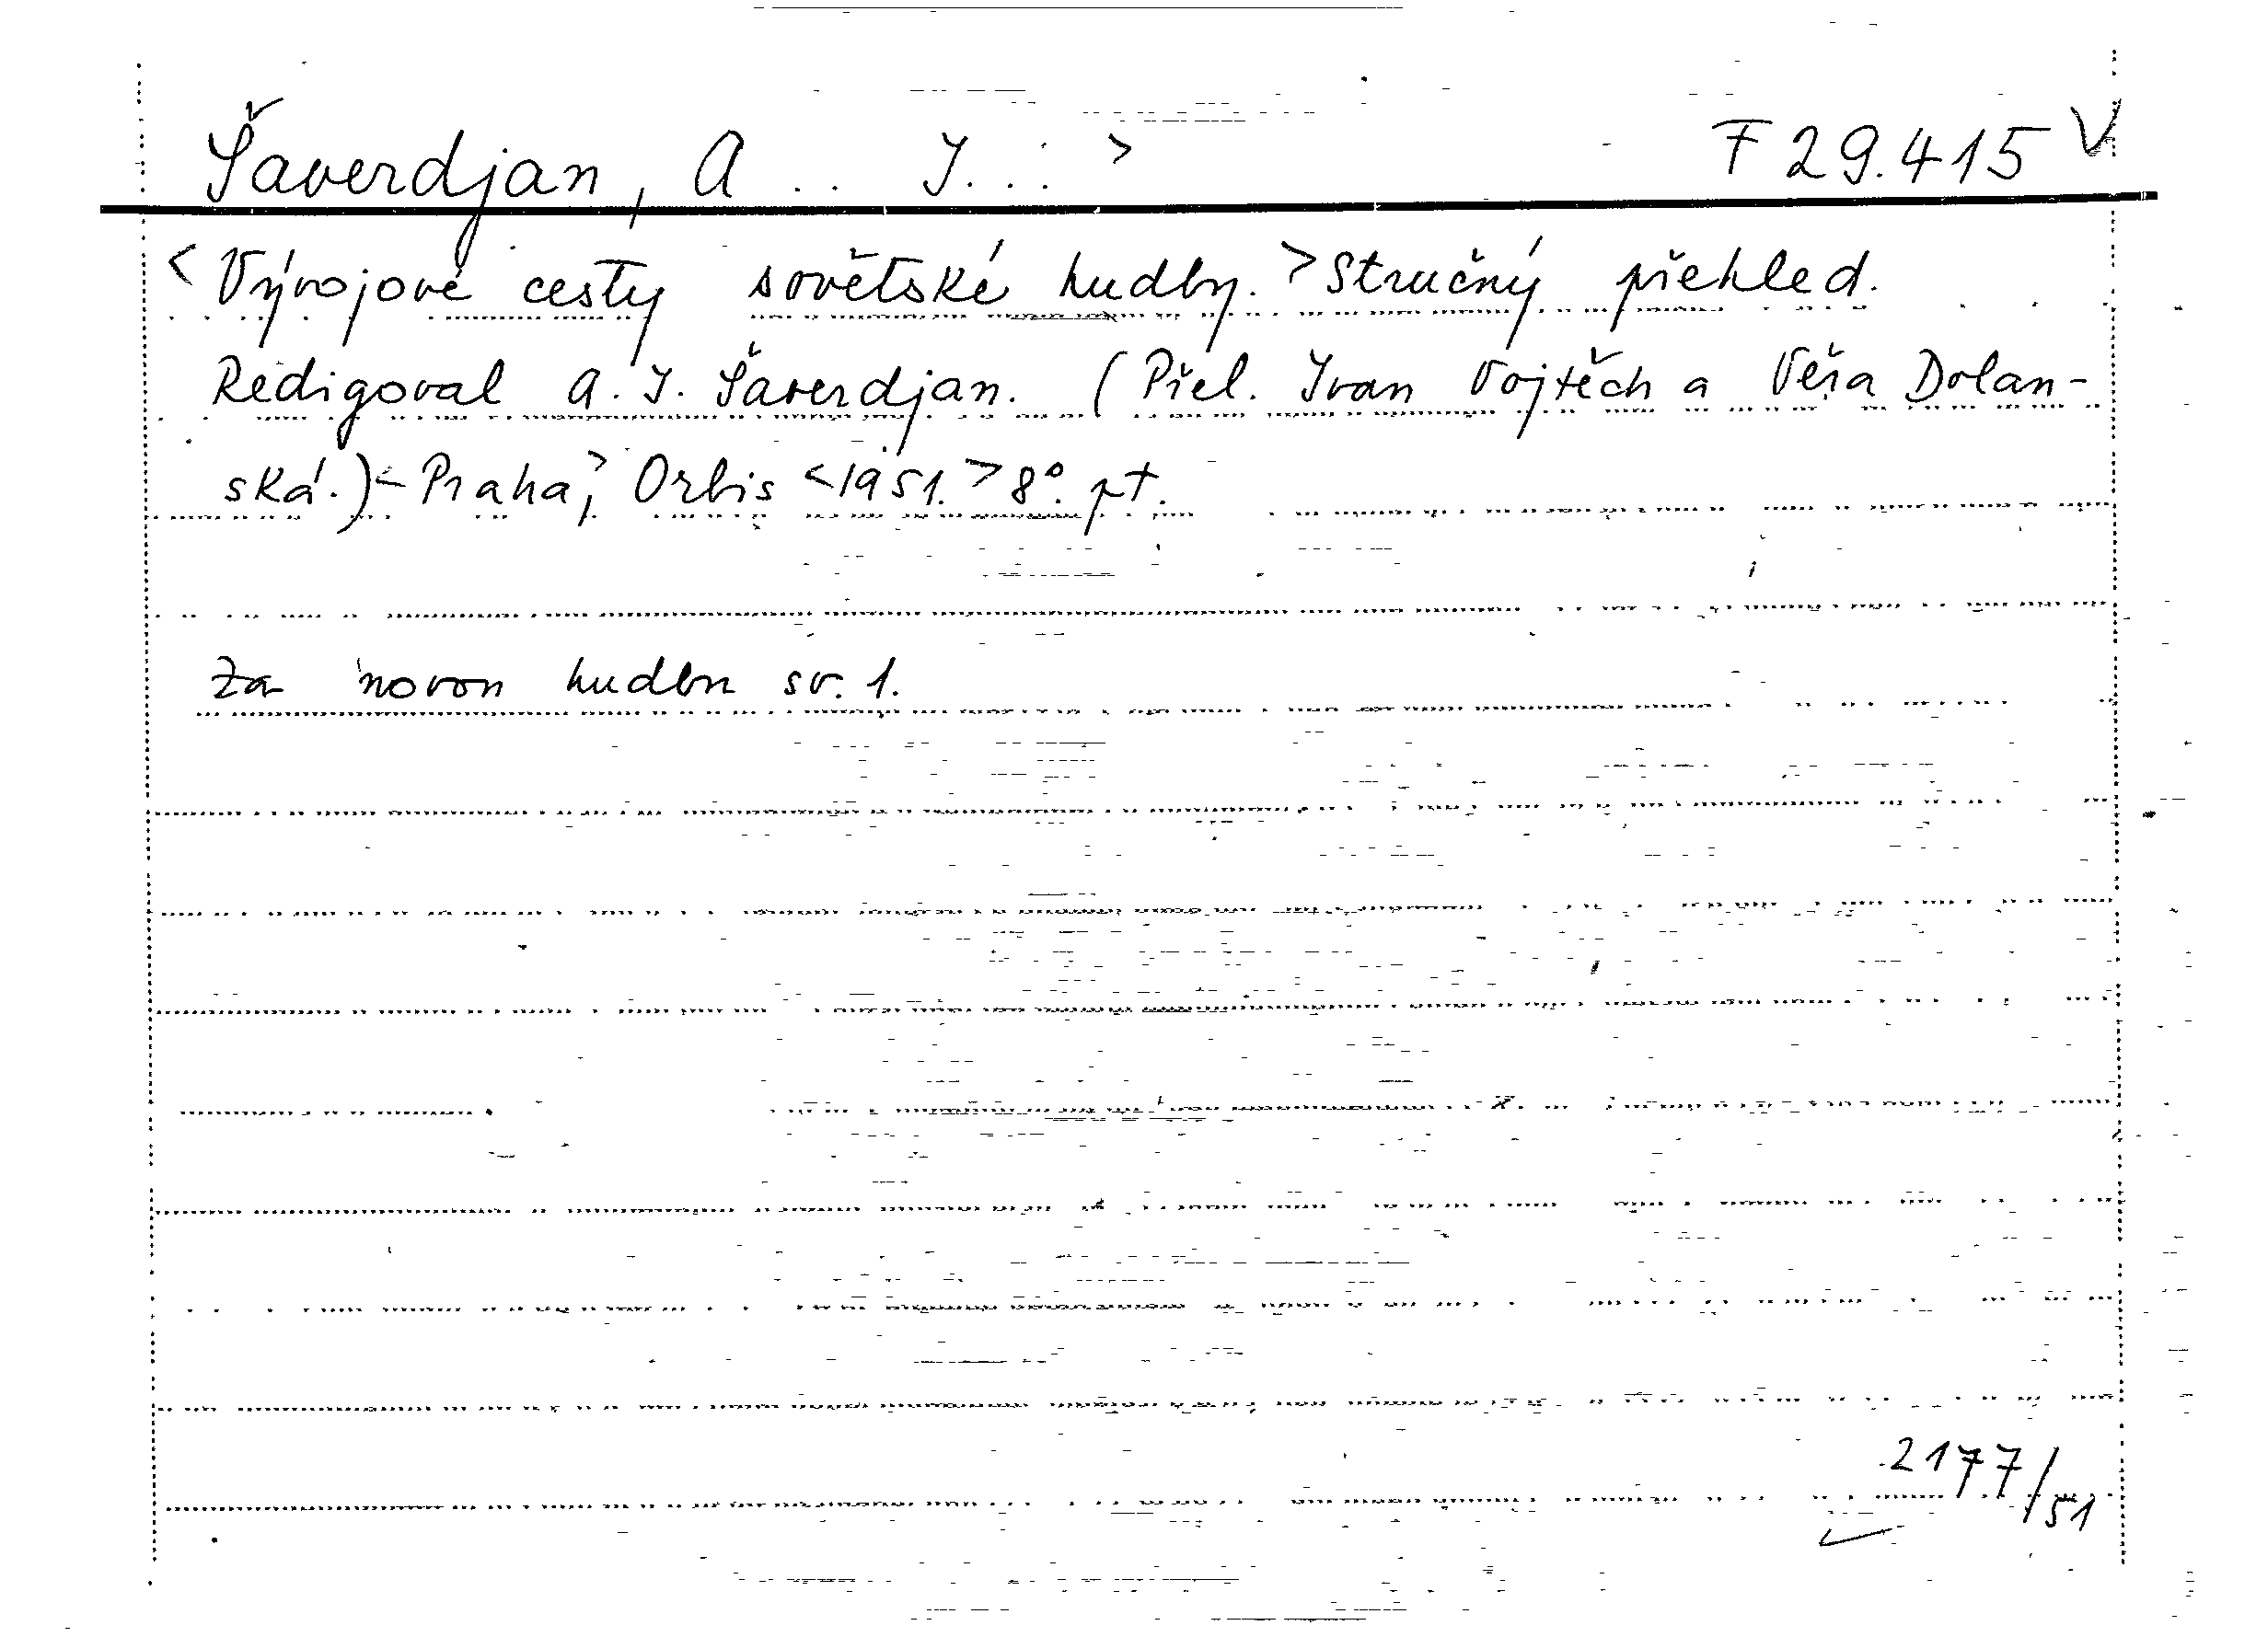 Šaverdjan, A .. J...>    F 29.415 V
<Vývojové cesty sovětské hudby.> Stručný přehled.
Redigoval A. J. Šaverdjan. (Přel. Ivan Vojtěch a Věra Dolan-
ská.) <Praha,> Orbis <1951.> 8°. pt.
Za novou hudbu sv. 1.
2177/51